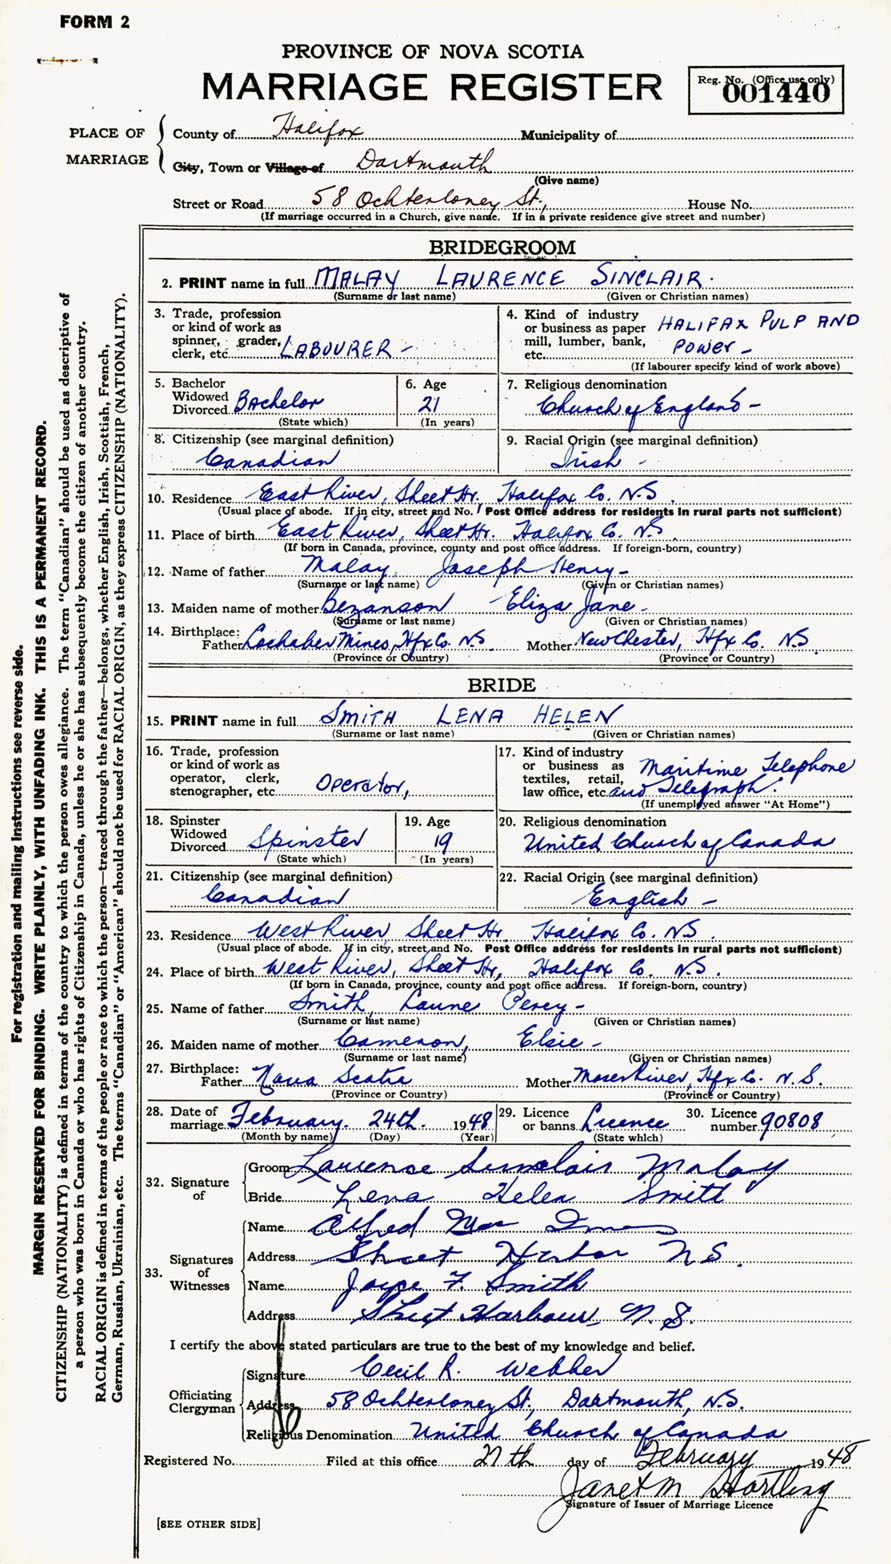 FORM 2
PROVINCE OF NOVA SCOTIA
MARRIAGE REGISTER
Reg. No. (Office use only)
001440
PLACE OF MARRIAGE
County of Halifax Municipality of
City, Town or Village of Dartmouth
(Give name)
Street or Road 58 Ochterloney St., House No.
(If marriage occurred in a Church, give name. If in a private residence give street and number)
BRIDEGROOM
2. PRINT name in full MALAY LAURENCE SINCLAIR.
(Surname or last name) (Given or Christian names)
3. Trade, profession
or kind of work as
spinner, grader,
clerk, etc. LABOURER -
4. Kind of industry
or business as paper
mill, lumber, bank,
etc. HALIFAX PULP AND
POWER -
(If labourer specify kind of work above)
5. Bachelor
Widowed
Divorced Bachelor
(State which)
6. Age
21
(In years)
7. Religious denomination
Church of England -
8. Citizenship (see marginal definition)
Canadian
9. Racial Origin (see marginal definition)
Irish -
10. Residence East River, Sheet Hr. Halifax Co. N.S.
(Usual place of abode. If in city, street and No. Post Office address for residents in rural parts not sufficient)
11. Place of birth East River, Sheet Hr. Halifax Co. N.S.
(If born in Canada, province, county and post office address. If foreign-born, country)
12. Name of father Malay, Joseph Henry -
(Surname or last name) (Given or Christian names)
13. Maiden name of mother Bezanson Eliza Jane -
(Surname or last name) (Given or Christian names)
14. Birthplace:
Father Cochaber Mines, Hfx Co. N.S. Mother New Chester, Hfx Co. N.S
(Province or Country) (Province or Country)
BRIDE
15. PRINT name in full SMITH LENA HELEN
(Surname or last name) (Given or Christian names)
16. Trade, profession
or kind of work as
operator, clerk,
stenographer, etc. Operator,
17. Kind of industry
or business as
textiles, retail,
law office, etc. Maritime Telephone
and Telegraph.
(If unemployed answer "At Home")
18. Spinster
Widowed
Divorced Spinster
(State which)
19. Age
19
(In years)
20. Religious denomination
United Church of Canada
21. Citizenship (see marginal definition)
Canadian
22. Racial Origin (see marginal definition)
English -
23. Residence West River, Sheet Hr Halifax Co. NS.
(Usual place of abode. If in city, street, and No. Post Office address for residents in rural parts not sufficient)
24. Place of birth West River, Sheet Hr, Halifax Co. N.S.
(If born in Canada, province, county and post office address. If foreign-born, country)
25. Name of father Smith, Percy -
(Surname or last name) (Given or Christian names)
26. Maiden name of mother Cameron, Elsie -
(Surname or last name) (Given or Christian names)
27. Birthplace:
Father Nova Scotia Mother Moser River, Hfx Co. N.S.
(Province or Country) (Province or Country)
28. Date of
marriage February 24th. 1948
(Month by name) (Day) (Year)
29. Licence
or banns Licence
(State which)
30. Licence
number 90808
32. Signature of
Groom Laurence Sinclair Malay
Bride Lena Helen Smith
33. Signatures of Witnesses
Name Alfred
Address Sheet Harbor NS.
Name Joyce F. Smith
Address Sheet Harbour, N.S.
I certify the above stated particulars are true to the best of my knowledge and belief.
Officiating Clergyman
Signature Cecil R. Webber
Address 58 Ochterloney St., Dartmouth, N.S.
Religious Denomination United Church of Canada
Registered No. Filed at this office 27th day of February 1948
Janet M Hartling
Signature of Issuer of Marriage Licence
[SEE OTHER SIDE]
For registration and mailing instructions see reverse side.
MARGIN RESERVED FOR BINDING. WRITE PLAINLY, WITH UNFADING INK. THIS IS A PERMANENT RECORD.
CITIZENSHIP (NATIONALITY) is defined in terms of the country to which the person owes allegiance. The term "Canadian" should be used as descriptive of
a person who was born in Canada or who has rights of Citizenship in Canada, unless he or she has subsequently become the citizen of another country.
RACIAL ORIGIN is defined in terms of the people or race to which the person—traced through the father—belongs, whether English, Irish, Scottish, French,
German, Russian, Ukrainian, etc. The terms "Canadian" or "American" should not be used for RACIAL ORIGIN, as they express CITIZENSHIP (NATIONALITY).